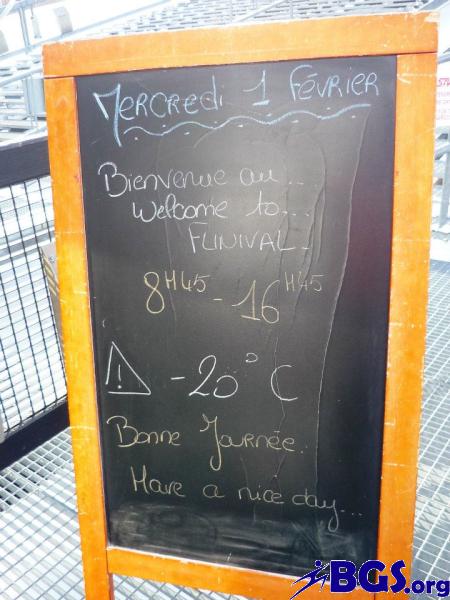 MERCREDI 1 FÉVRIER
Bienvenue au...
Welcome to...
FUNIVAL.
8H45 - 16H45
! -20°C
Bonne Journée.
Have a nice day...
BGS.org